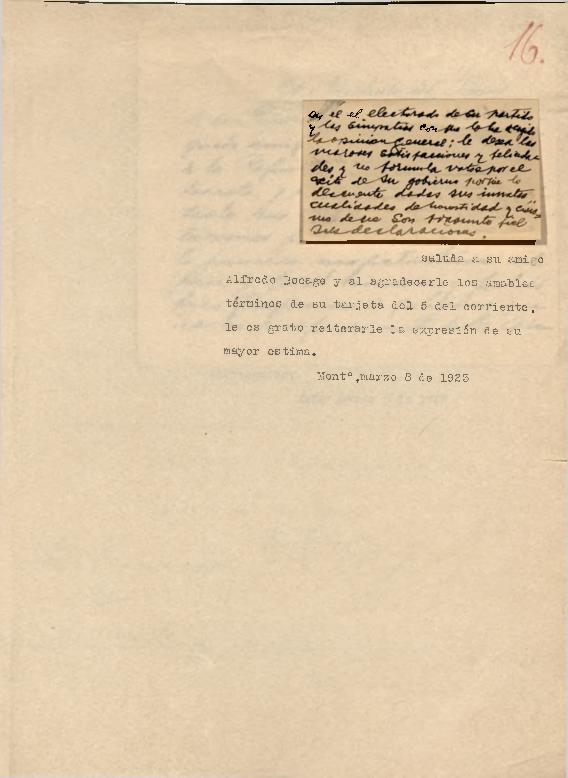 16.
en él el electorado de su partido
y las simpatias con que lo ha acogido
la opinion general; le desea las
mayores satisfacciones y felicida
des y no formula votos por el
exito de su gobierno porque lo
descuenta dadas sus innatas
cualidades de honestidad y civis-
mo de que son trasunto fiel
sus declaraciones.
saluda a su amigo
Alfredo Bocage y al agradecerle los amables
términos de su tarjeta del 5 del corriente,
le es grato reiterarle la expresión de su
mayor estima.
Montº,marzo 8 de 1923